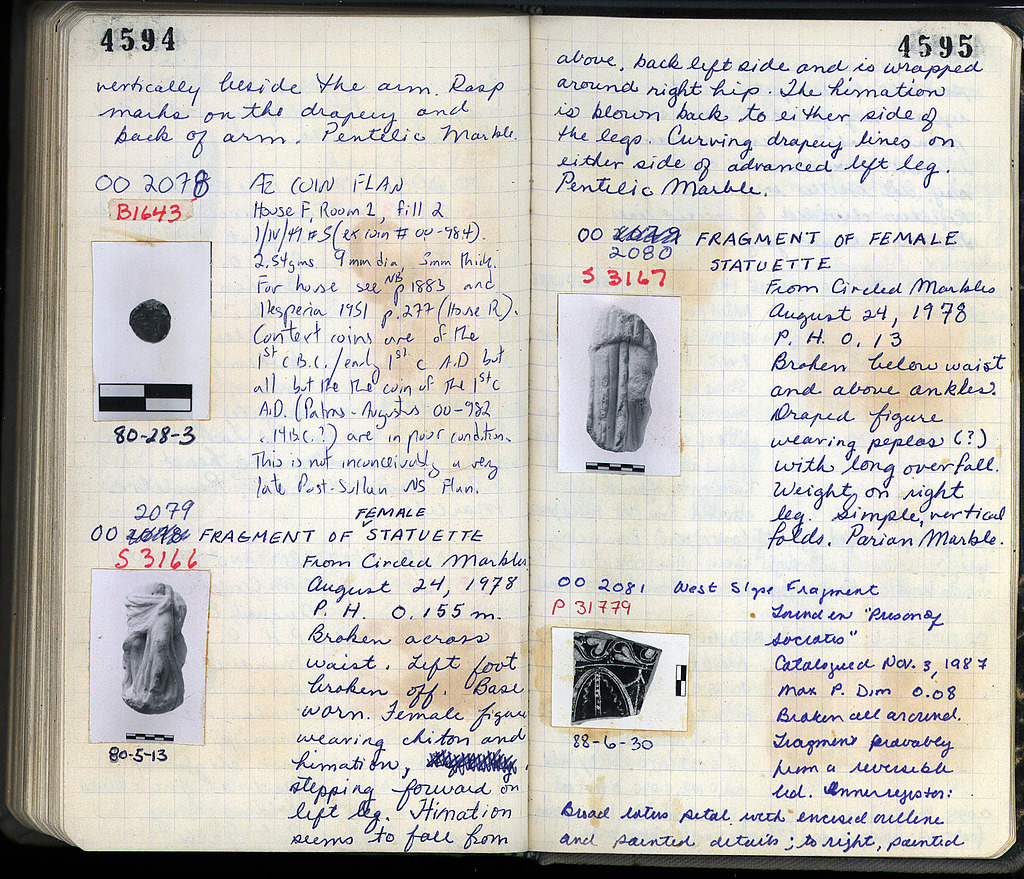 4594
vertically beside the arm. Rasp
marks on the drapery and
back of arm. Pentelic Marble.
OO 2078
B1643
Æ COIN FLAN
House F, Room 1, fill 2
1/IV/49 #5 (ex coin # OO-984).
2.54gms 9mm dia, 3mm thick.
For house see NB p1883 and
Hesperia 1951 p.277 (House R).
Context coins are of the
1st c B.C./early 1st c A.D but
all but the the coin of the 1st c
A.D. (Patras-Augustus OO-982
14 B.C.?) are in poor condition.
This is not inconceivably a very
late Post-Sullan NS Flan.
80-28-3
2079
OO FRAGMENT OF FEMALE STATUETTE
S 3166
From Circled Marbles
August 24, 1978
P. H. 0.155 m.
Broken across
waist. Left foot
broken off. Base
worn. Female figure
wearing chiton and
himation,
stepping forward on
left leg. Himation
seems to fall from
80-5-13
4595
above, back left side and is wrapped
around right hip. The himation
is blown back to either side of
the legs. Curving drapery lines on
either side of advanced left leg.
Pentelic Marble.
OO 2079 FRAGMENT OF FEMALE
2080 STATUETTE
S 3167
From Circled Marbles
August 24, 1978
P. H. 0.13
Broken below waist
and above ankles.
Draped figure
wearing peplos (?)
with long overfall.
Weight on right
leg. Simple, vertical
folds. Parian Marble.
OO 2081 West Slope Fragment
P 31779
Found in "Prison of
Socrates"
Catalogued Nov. 3, 1987
Max P. Dim 0.08
Broken all around.
Fragment probably
from a reversible
lid. Inner register:
88-6-30
Broad lotus petal with incised outline
and painted details; to right, painted